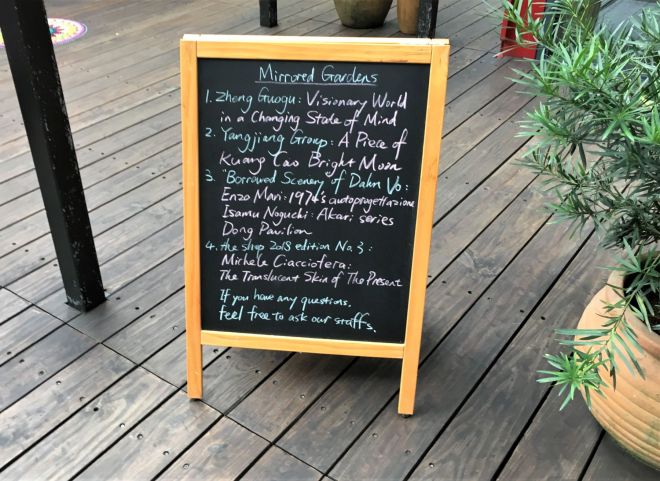 Mirrored Gardens
1. Zheng Guogu: Visionary World
in a Changing State of Mind
2. Yangjiang Group: A Piece of
Kuang Cao Bright Moon
3. "Borrowed Scenery of Dahn Vo:
Enzo Mari: 1974's autoprogettazione
Isamu Noguchi: Akari series
Dong Pavilion
4. the shop 2018 edition No.3:
Michele Ciacciofera:
The Translucent Skin of The Present
If you have any questions,
feel free to ask our staffs.